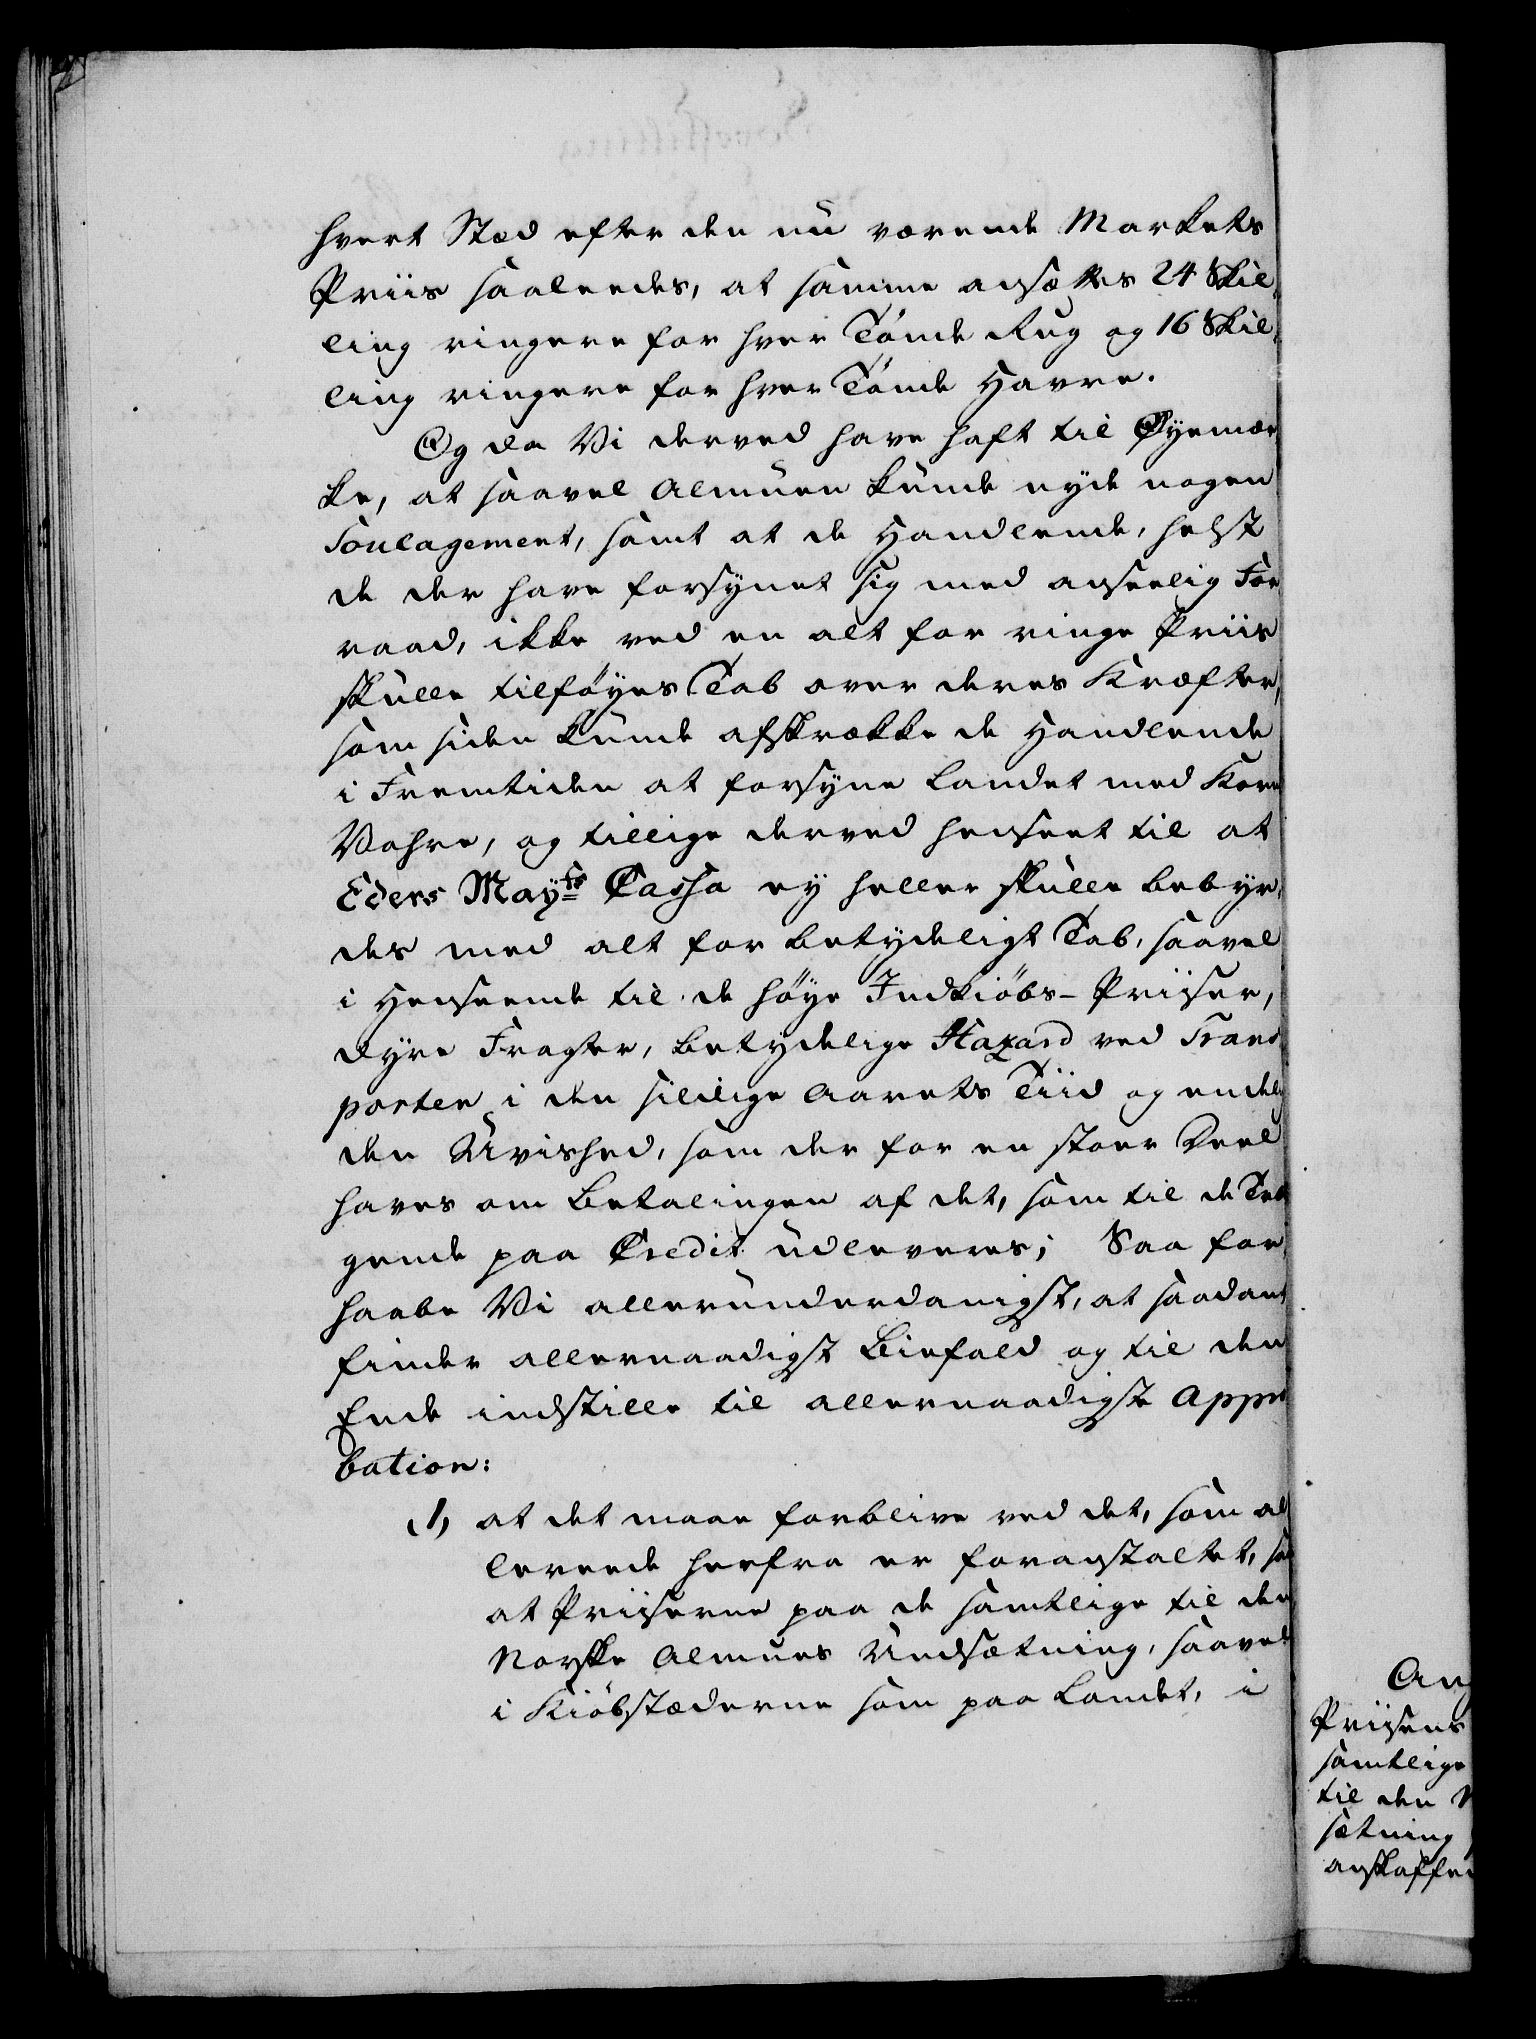 hvert Stæd efter den nu værende Markets
Priis saaledes, at samme ansættes 24 Skil-
ling ringere for hver Tönde Rug og 16 Skil-
ling ringere for hver Tönde Havre.
Og da Vi derved have haft til Øyemær-
ke, at saavel Almuen kunde nyde nogen
Soulagement, samt at de Handlende, helst
de der have forsynet sig med anseelig For-
raad, ikke ved en alt for ringe Priis
skulle tilföyes Tab over deres Kræfter,
som siden kunde afskrække de Handlende
i Fremtiden at forsyne Landet med Korn
Vahre, og tillige derved henseet til at
Eders Mayts Cassa ey heller skulle bebyr-
des med alt for betydeligt Tab, saavel
i Henseende til de höye Indkiöbs-Priiser,
dyre Fragter, betydelige Hazard ved Trans-
porten i den sildige Aarets Tiid og endelig
den Uvished, som der for en stoer Deel
haves om Betalingen af det, som til de Træn-
gende paa Credit udleveres; Saa for-
haabe Vi allerunderdanigst, at saadant
finder allernaadigst Biefald og til den
Ende indstille til allernaadigste Appro-
bation:
1, at det maae forblive ved det, som al-
lereede herfra er foranstaltet, saa
at Priiserne paa de samtlige til den
Norske Almues Undsætning, saavel
i Kiöbstæderne som paa Landet, i
An
Priisens
samtlige
til den N
sætning
anskaffed